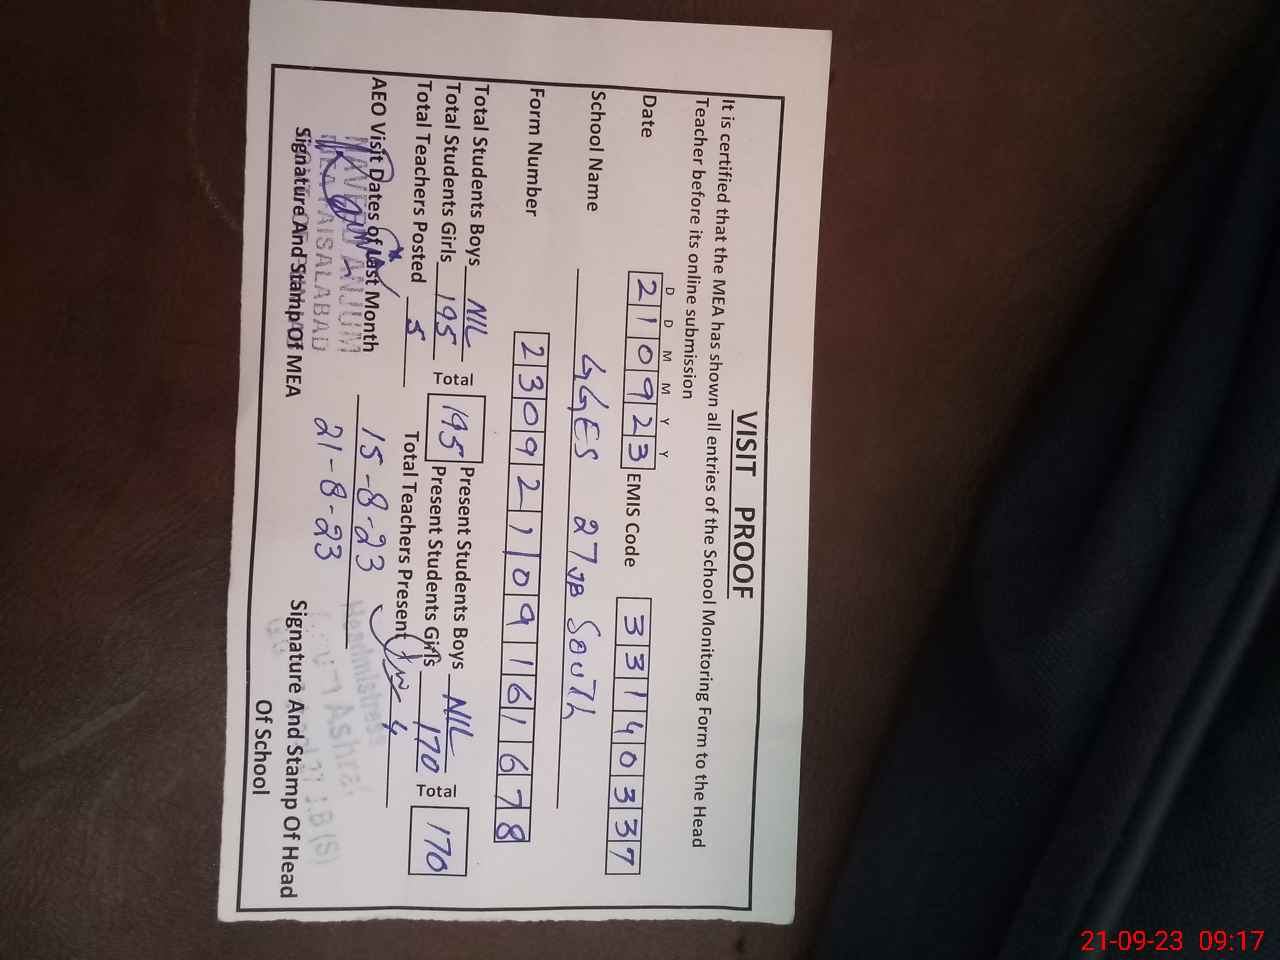 VISIT PROOF
It is certified that the MEA has shown all entries of the School Monitoring Form to the Head
Teacher before its online submission
D D M M Y Y
Date 210923 EMIS Code 33140337
School Name GGES 27 JB South
Form Number 23092109161678
Total Students Boys NIL Present Students Boys NIL
Total Students Girls 195 Total 195 Present Students Girls 170 Total 170
Total Teachers Posted 5 Total Teachers Present 4
AEO Visit Dates of Last Month 15-8-23
21-8-23
ANJUM
MEA FAISALABAD
Signature And Stamp Of MEA
Headmistress
Ashraf
J.B (S)
Signature And Stamp Of Head
Of School
21-09-23 09:17